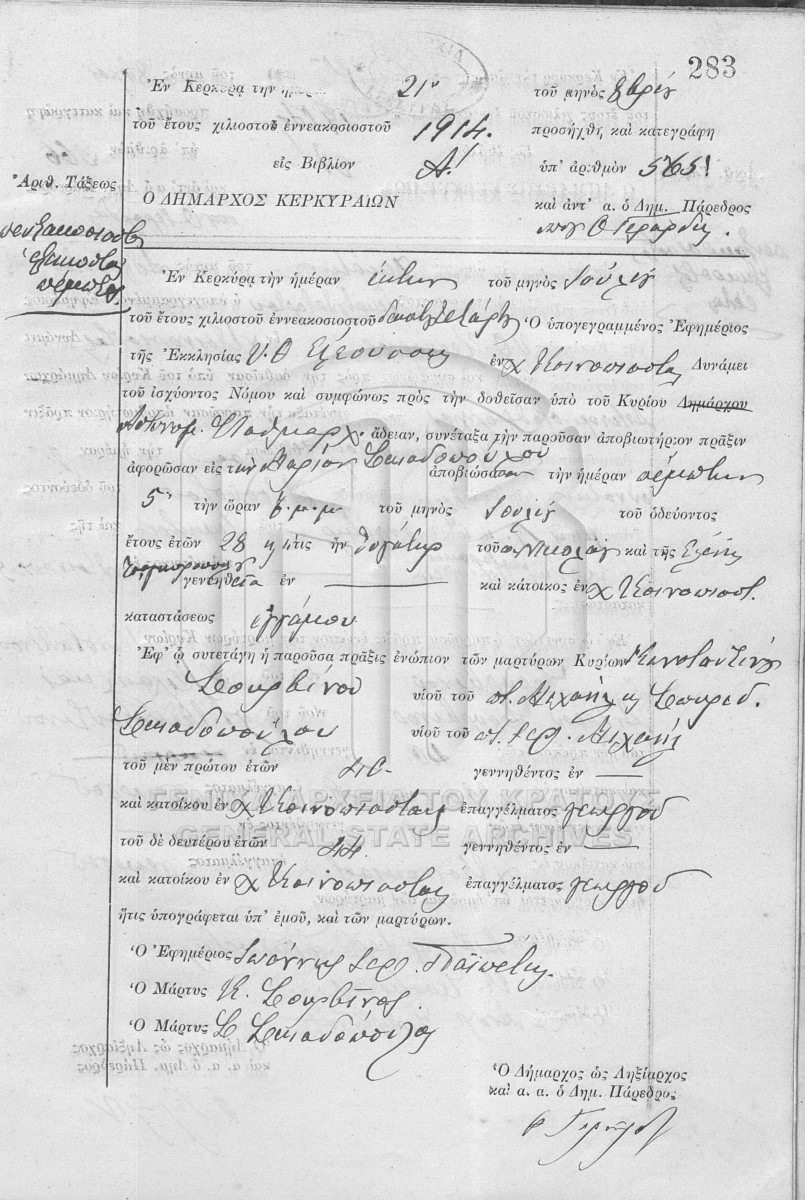 283
Ἐν Κερκύρᾳ τὴν ἡμέραν 21ην τοῦ μηνὸς 8βρίου
τοῦ ἔτους χιλιοστοῦ ἐννεακοσιοστοῦ 1914. προσήχθη καὶ κατεγράφη
εἰς Βιβλίον Α! ὑπ' ἀριθμὸν 565!
Ἀριθ. Τάξεως
Ο ΔΗΜΑΡΧΟΣ ΚΕΡΚΥΡΑΙΩΝ καὶ ἀντ' α. ὁ Δημ. Πάρεδρος
πεντακοσιοστὴ
ἑξηκοστὴ
πέμπτη
Ἐν Κερκύρᾳ τὴν ἡμέραν ἕκτην τοῦ μηνὸς Ἰουλίου
τοῦ ἔτους χιλιοστοῦ ἐννεακοσιοστοῦ Ὁ ὑπογεγραμμένος Ἐφημέριος
τῆς Ἐκκλησίας Υ. Θ. Ἐλεούσης ἐν χ Κοινοπιάστας Δυνάμει
τοῦ ἰσχύοντος Νόμου καὶ συμφώνως πρὸς τὴν δοθεῖσαν ὑπὸ τοῦ Κυρίου Δημάρχου
Ἀστυνομ. Σταθμάρχ. ἄδειαν, συνέταξα τὴν παροῦσαν ἀποβιωτήριον πρᾶξιν
ἀφορῶσαν εἰς τὴν Μαρίαν ἀποβιώσασαν τὴν ἡμέραν πέμπτην
5 τὴν ὥραν μ.μ. τοῦ μηνὸς Ἰουλίου τοῦ ὁδεύοντος
ἔτους ἐτῶν 28 ἥτις ἦν θυγάτηρ τοῦ Νικολάου καὶ τῆς Ἑλένης
γεννηθεῖσα ἐν καὶ κάτοικος ἐν χ Κοινοπιαστ.
καταστάσεως ἐγγάμου
Ἐφ' ᾧ συνετάγη ἡ παροῦσα πρᾶξις ἐνώπιον τῶν μαρτύρων Κυρίων Κωνσταντίνου
Σουρβίνου υἱοῦ τοῦ π. Μιχαήλ κ Σπυρίδ.
υἱοῦ τοῦ π. ἱερ. Μιχαήλ
τοῦ μὲν πρώτου ἐτῶν 40 γεννηθέντος ἐν
καὶ κατοίκου ἐν χ Κοινοπιάστας ἐπαγγέλματος γεωργοῦ
τοῦ δὲ δευτέρου ἐτῶν 44. γεννηθέντος ἐν
καὶ κατοίκου ἐν χ Κοινοπιάστας ἐπαγγέλματος γεωργοῦ
ἥτις ὑπογράφεται ὑπ' ἐμοῦ, καὶ τῶν μαρτύρων.
Ὁ Ἐφημέριος Ἰωάννης ἱερ. Παϊπέτης
Ὁ Μάρτυς Κ. Σουρβῖνος
Ὁ Μάρτυς Σ
Ὁ Δήμαρχος ὡς Ληξίαρχος
καὶ α. α. ὁ Δημ. Πάρεδρος
ΓΕΝΙΚΑ ΑΡΧΕΙΑ ΤΟΥ ΚΡΑΤΟΥΣ
GENERAL STATE ARCHIVES